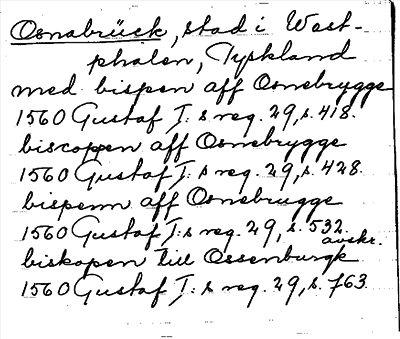 Osnabrück, stad i West-
phalen, Tyskland
med bispen aff Osnebrygge
1560 Gustaf I:s reg. 29, s. 418.
biscoppen aff Osnebrygge
1560 Gustaf I:s reg. 29, s. 428.
bispenn aff Osnebrugge
1560 Gustaf I:s reg. 29, s. 532.
avskr.
biskopen till Ossenburgk
1560 Gustaf I:s reg. 29, s. 763.